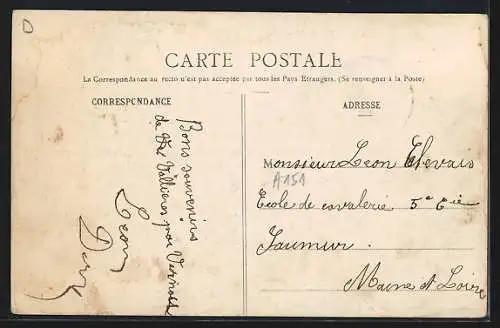 CARTE POSTALE
La Correspondance au recto n'est pas acceptée par tous les Pays Étrangers. (Se renseigner à la Poste)
CORRESPONDANCE
Bons souvenirs
de Vallieres par
Leon
ADRESSE
Monsieur Leon
A151
Ecole de cavalerie 5e Cie
Saumur
Maine et Loire